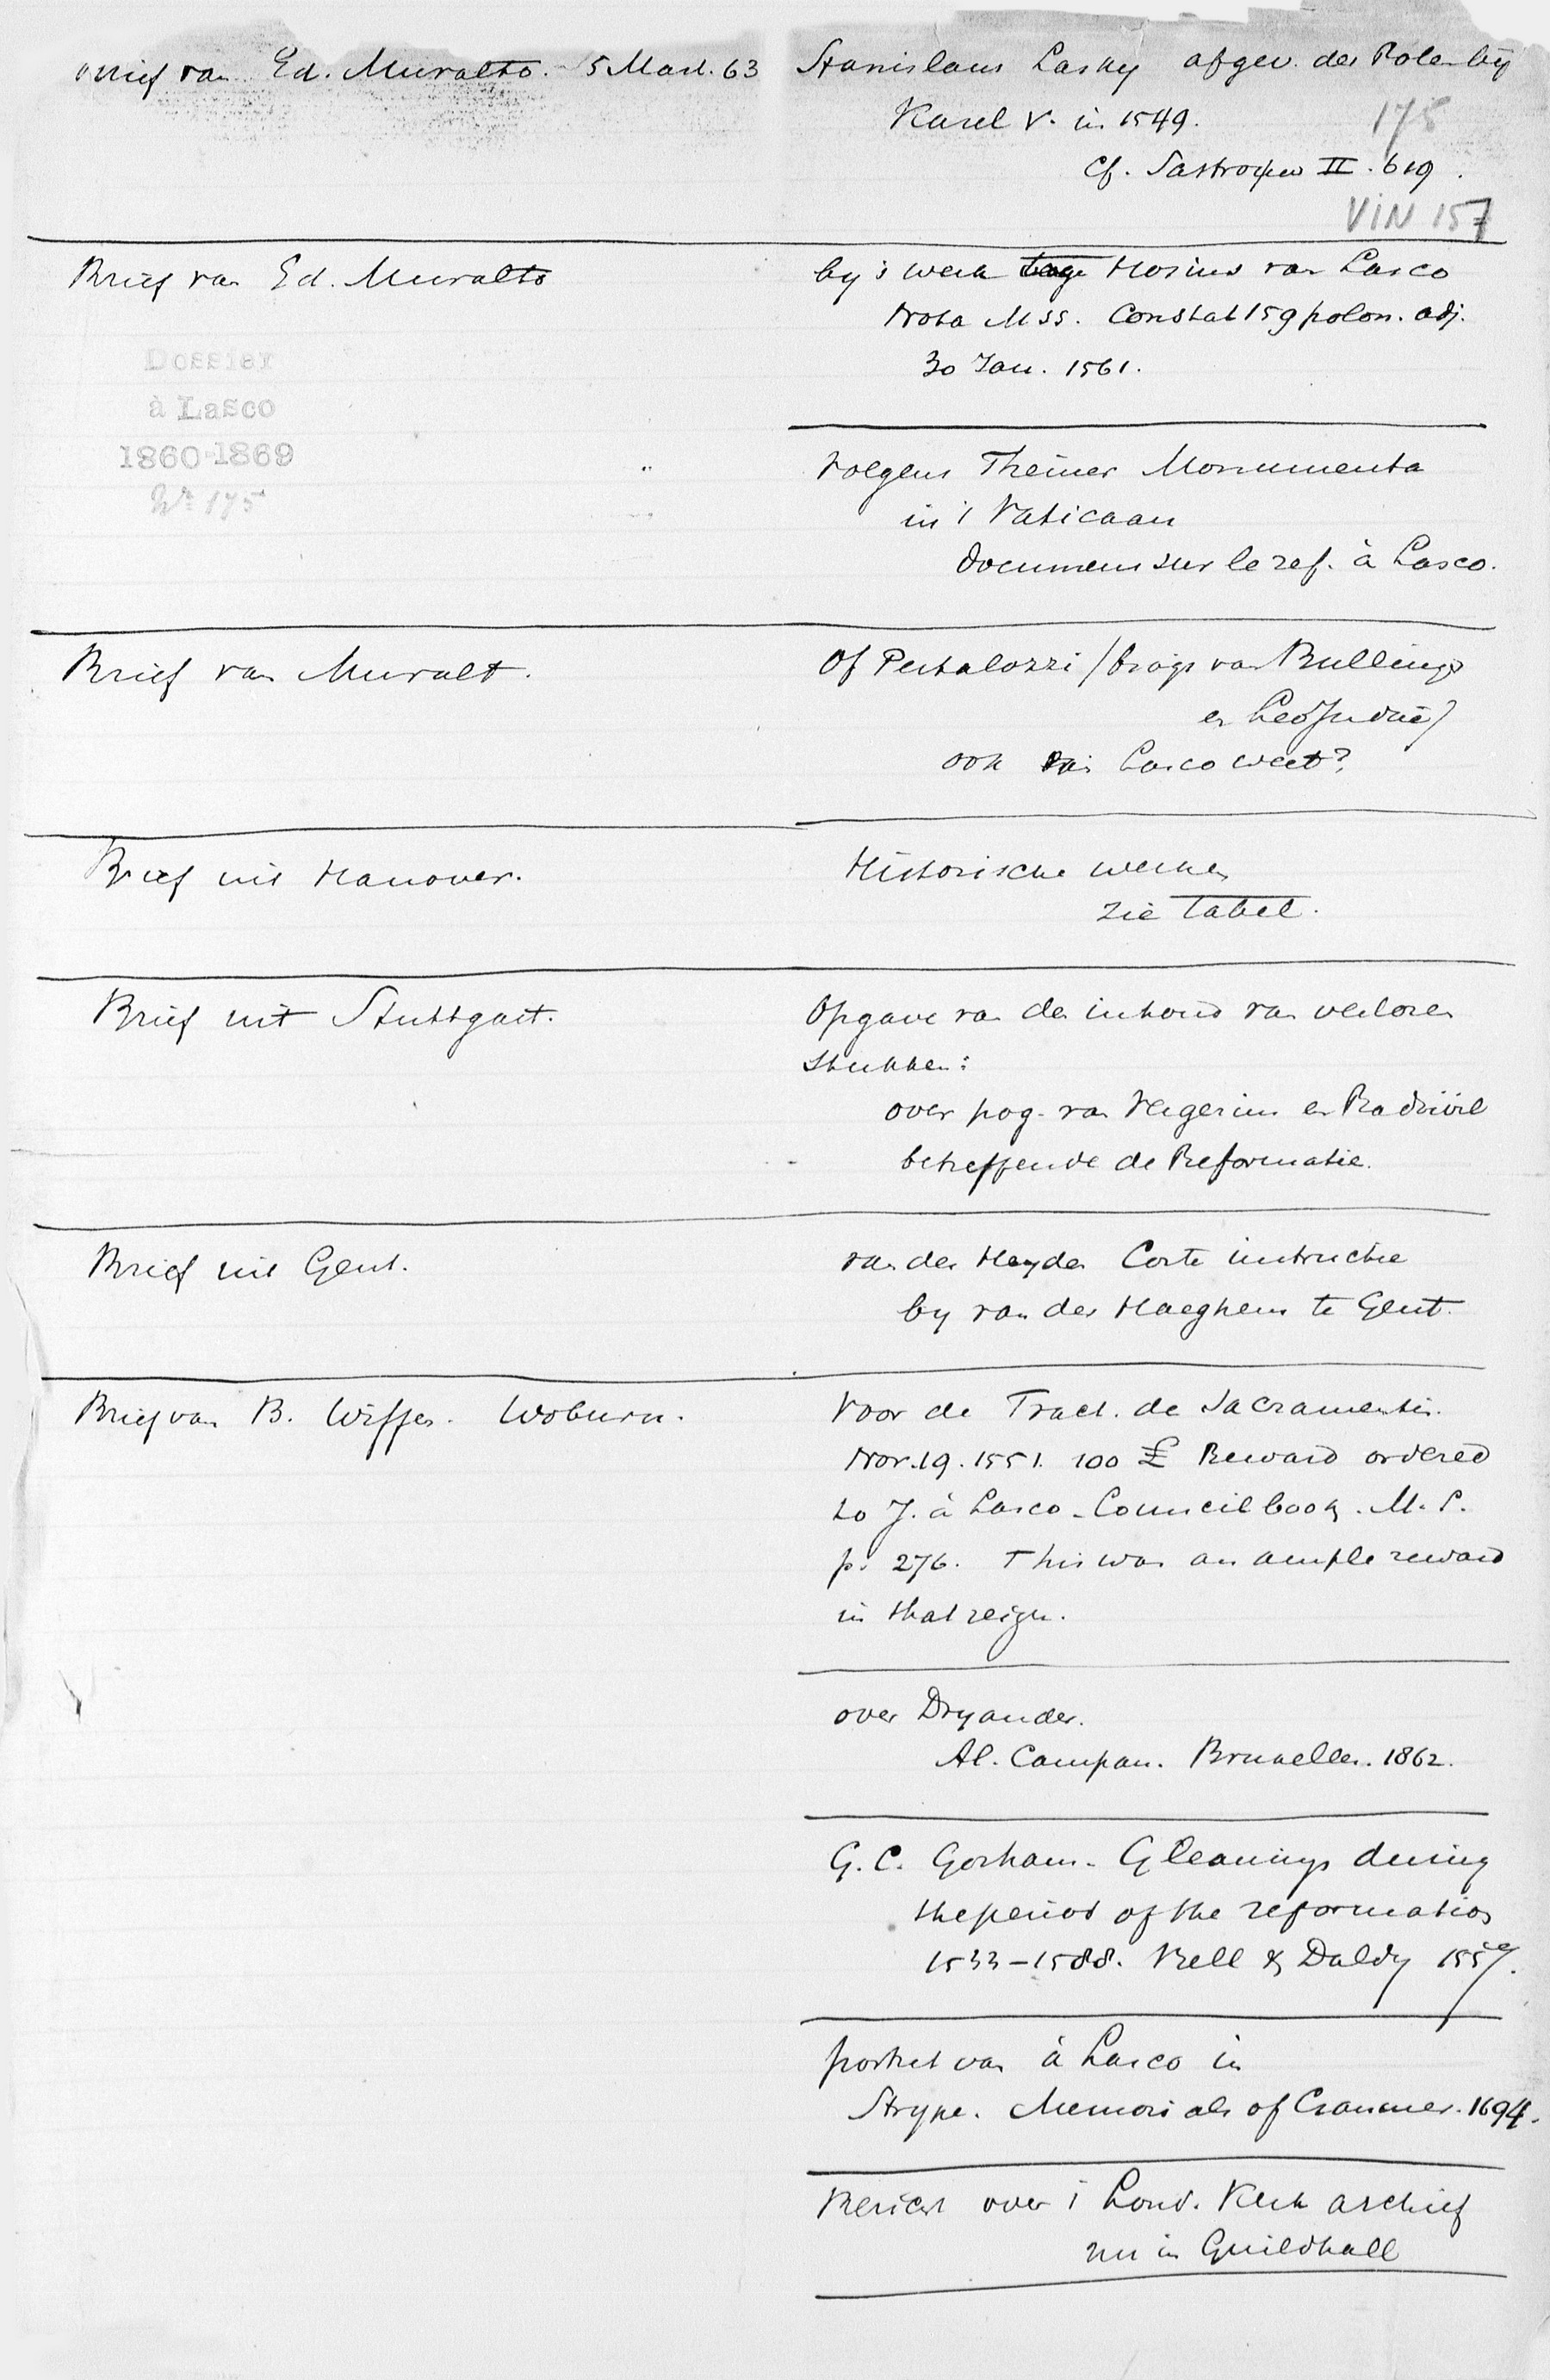 Brief van Ed. Muralto. 5 Maart. 63
Stanislaus Lasky afgev. der Polen bij
Karel V. in 1549.
175
Cf. Sastrowen II. 619.
VIN 157
Brief van Ed. Muralto
by 't werk tege Hosius van Lasco
Nota Mss. Constat 159 polon. adj.
30 Jan. 1561.
Dossier
à Lasco
1860-1869
No 175
Volgens Theiner Monumenta
in 't Vaticaan
documens sur le ref. à Lasco.
Brief van Muralt.
Of Pestalozzi (biogr van Bullinger
en Leo Judae)
ook van Lasco weet?
Brief uit Hanover.
Historische werken
zie Tabel.
Brief uit Stuttgart.
Opgave van den inhoud van verloren
stukken:
over pog. van Vergerius en Radziwil
betreffende de Reformatie.
Brief uit Gent.
van der Heyden Corte instructie
by van der Haeghens te Gent.
Brief van B. Wiffen. Woburn.
Voor de Tract. de Sacramentis.
Nov. 19. 1551. 100 £ Reward ordered
to J. à Lasco - Council book. M. S.
p. 276. This was an ample reward
in that reign.
over Dryander.
Al. Campan. Bruxelles. 1862.
G. C. Gorham - Gleanings during
the period of the reformation
1533-1588. Bell & Daldy 1557.
portret van à Lasco in
Strype. Memorials of Cranmer. 1694.
Bericht over 't Lond. Kerk archief
nu in Guildhall